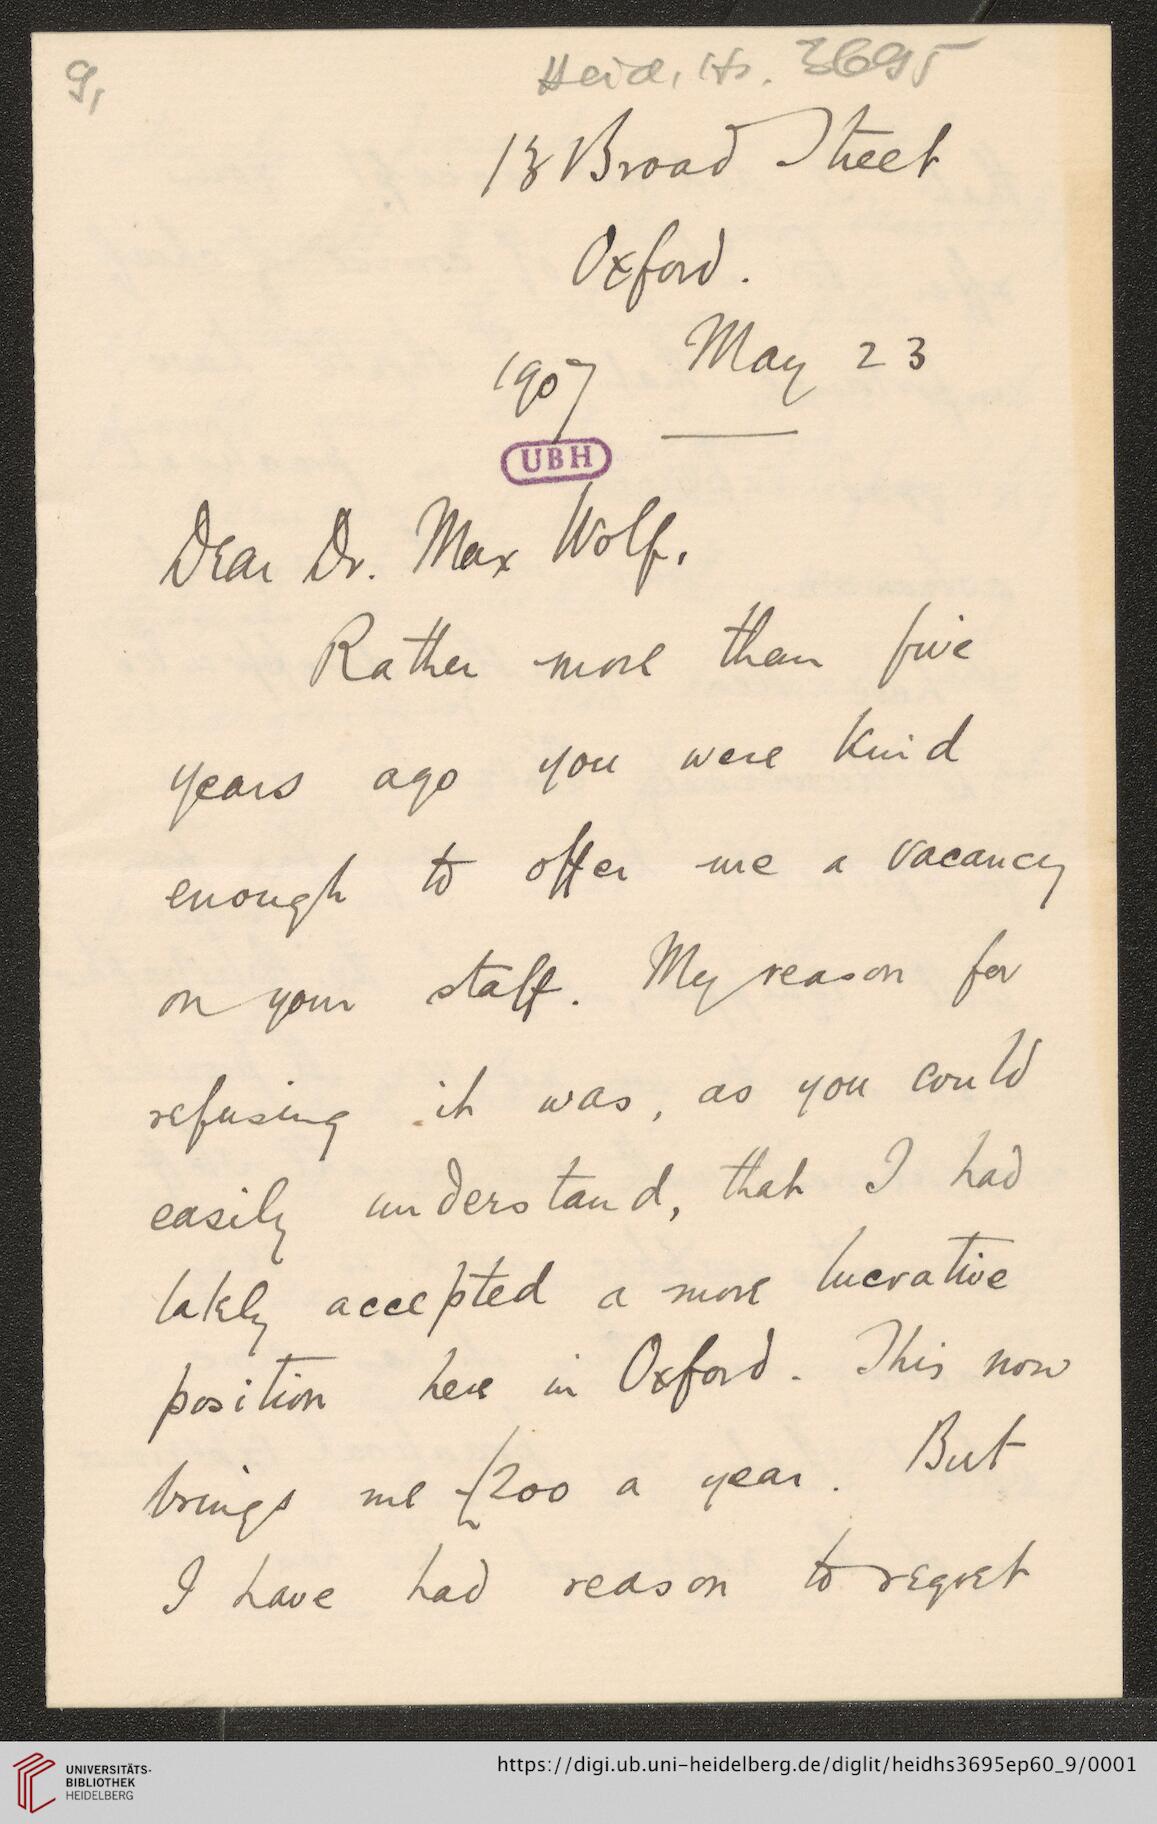 9,
Heid. Hs. 3695
13 Broad Street
Oxford.
May 23
1907
UBH
Dear Dr. Max Wolf,
Rather more than five
years ago you were kind
enough to offer me a vacancy
on your staff. My reason for
refusing it was, as you could
easily understand, that I had
lately accepted a more lucrative
position here in Oxford. This now
brings me £200 a year. But
I have had reason to regret
UNIVERSITÄTS-
BIBLIOTHEK
HEIDELBERG
https://digi.ub.uni-heidelberg.de/diglit/heidhs3695ep60_9/0001